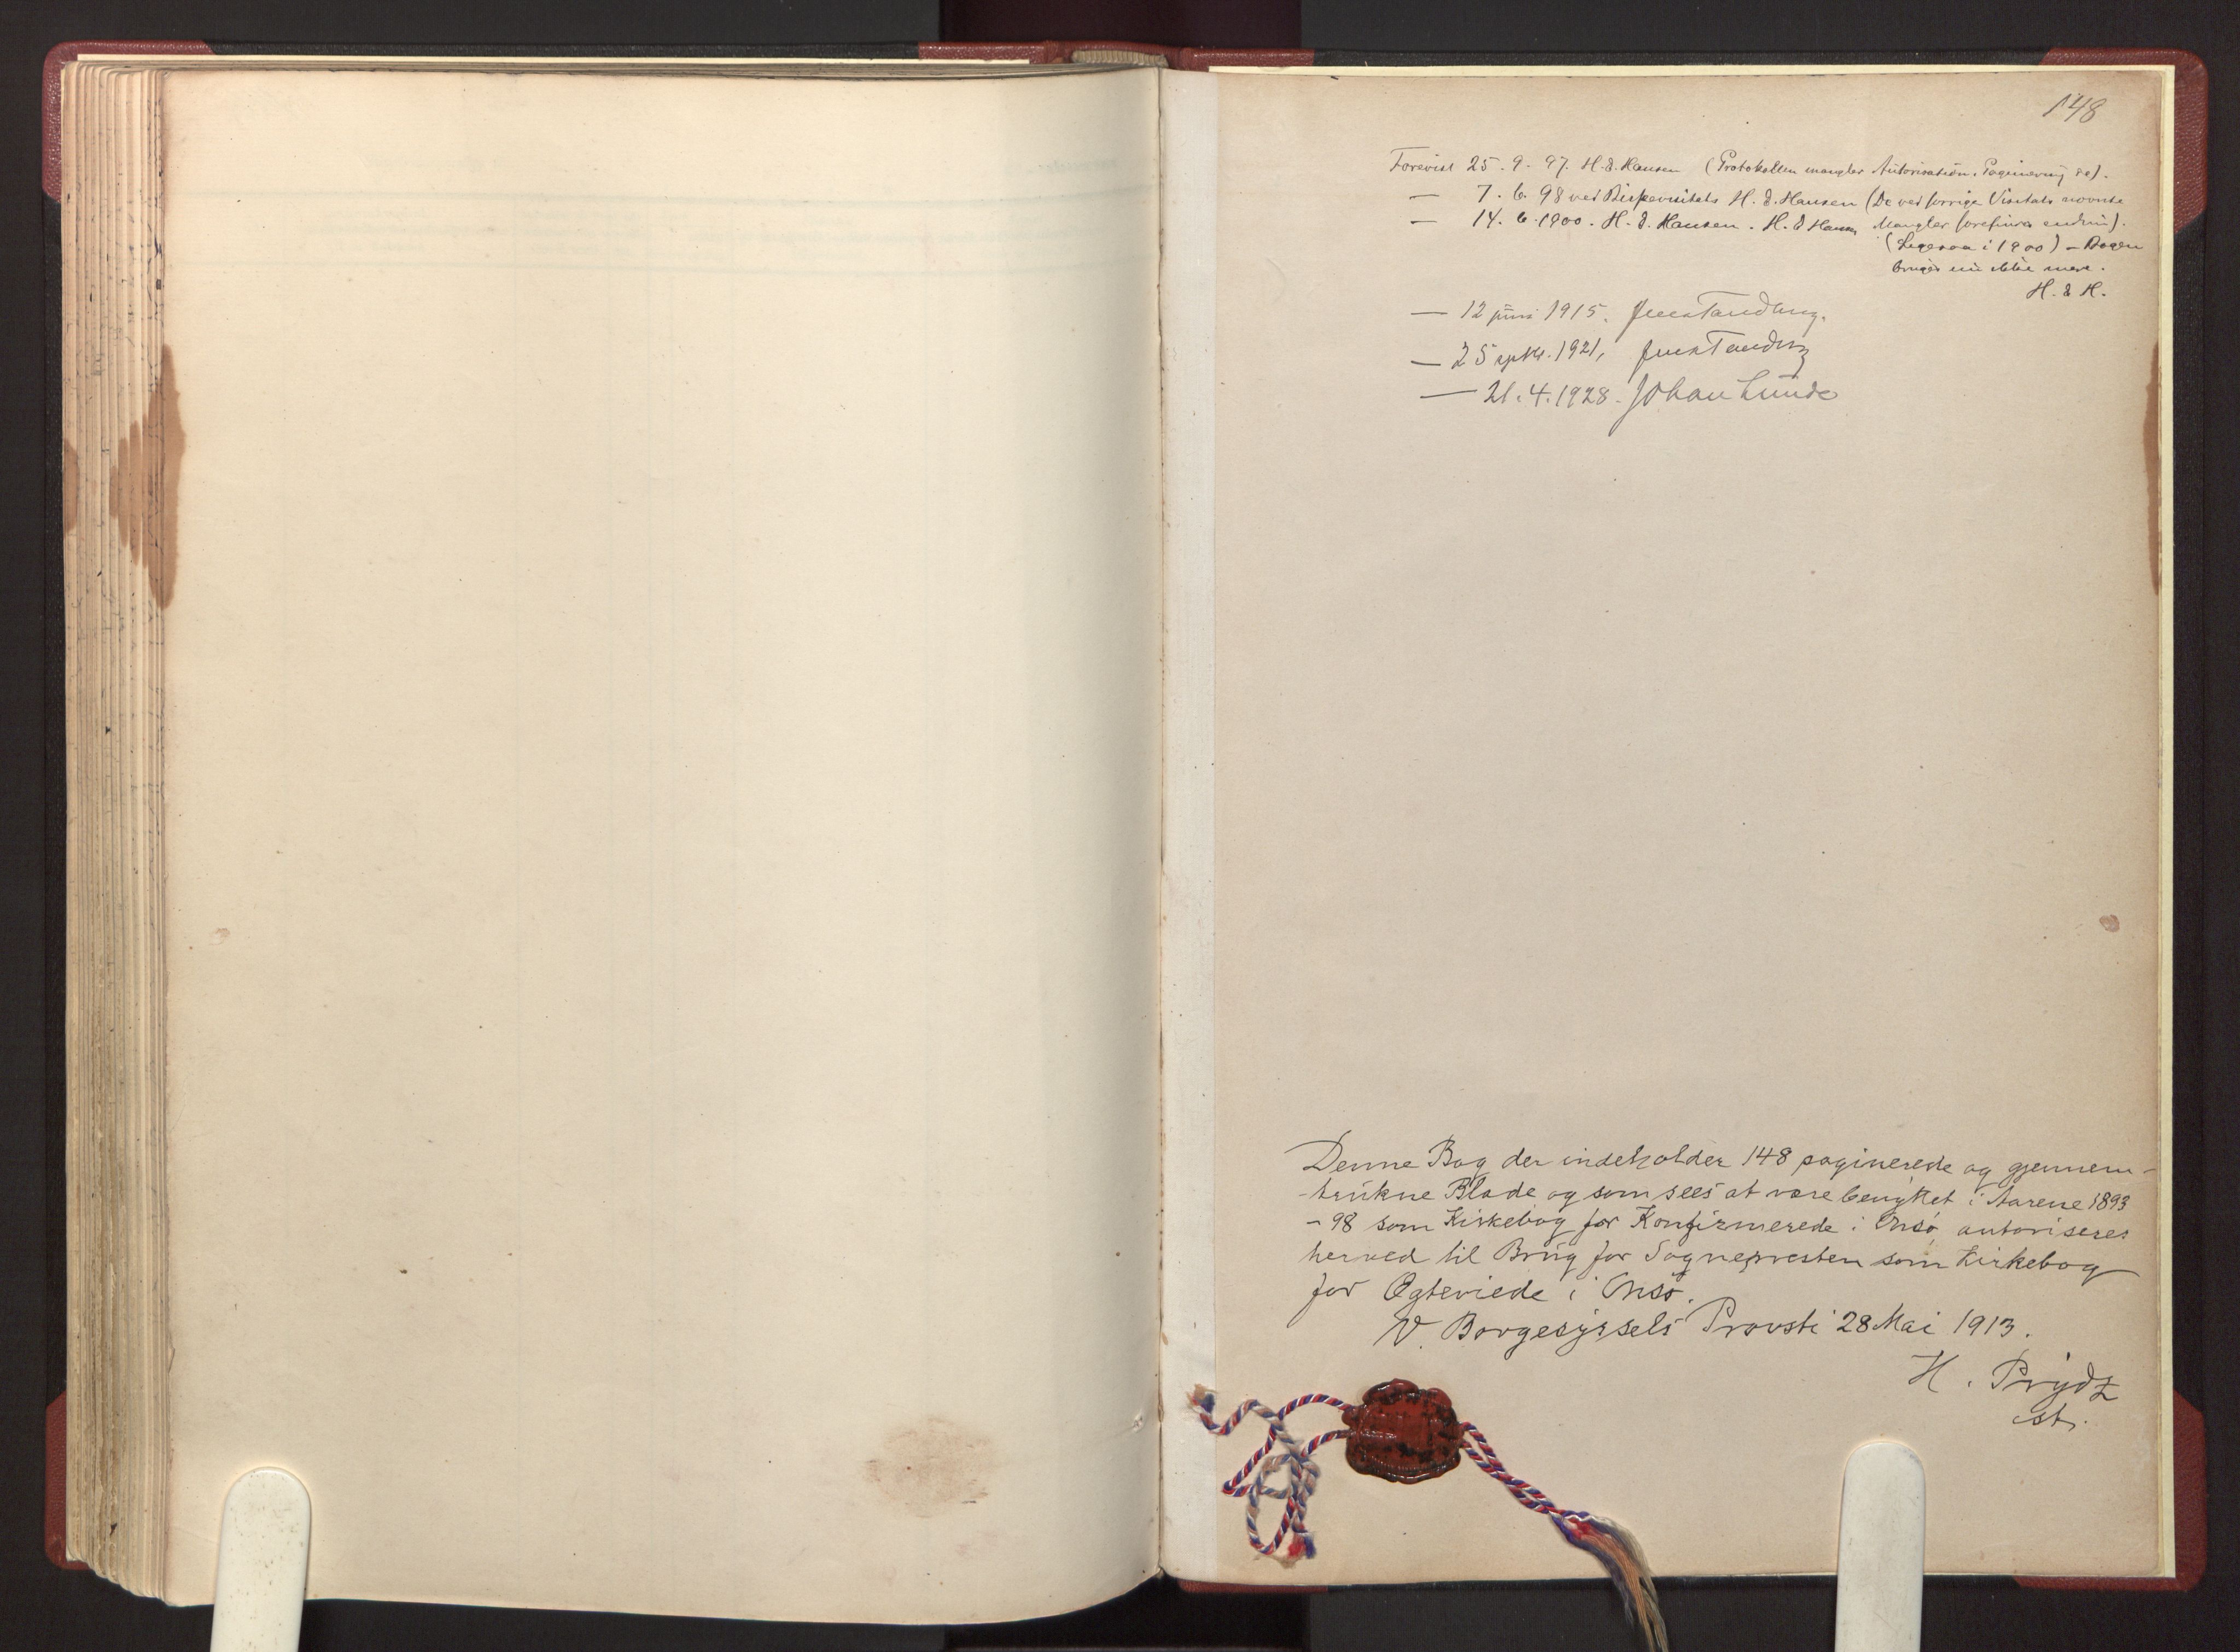 148
Forevist 25. 9. 97. H. E. Hansen (Protokollen mangler Autorisation, Paginering &c).
— 7. 6. 98 ved Bispevisitats H. E. Hansen (De ved forrige Visitats nævnte
— 14. 6. 1900. H. E. Hansen. H. E Hansen Mangler forefindes endnu).
(Ligesaa i 1900) – Bogen
bruges nu ikke mere.
H. E H.
— 12 juni 1915. Jens Tandberg.
— 25 septbr. 1921, Jens Tandberg
— 21. 4. 1928. Johan Lunde
Denne Bog der indeholder 148 paginerede og gjennem-
-trukne Blade og som sees at være benyttet i Aarene 1893
- 98 som Kirkebog for Konfirmerede i Onsø, autoriseres
herved til Brug for Sognepresten som Kirkebog
for Ægteviede i Onsø.
V. Borgesyssels Provsti 28 Mai 1913.
H. Prydz
st.